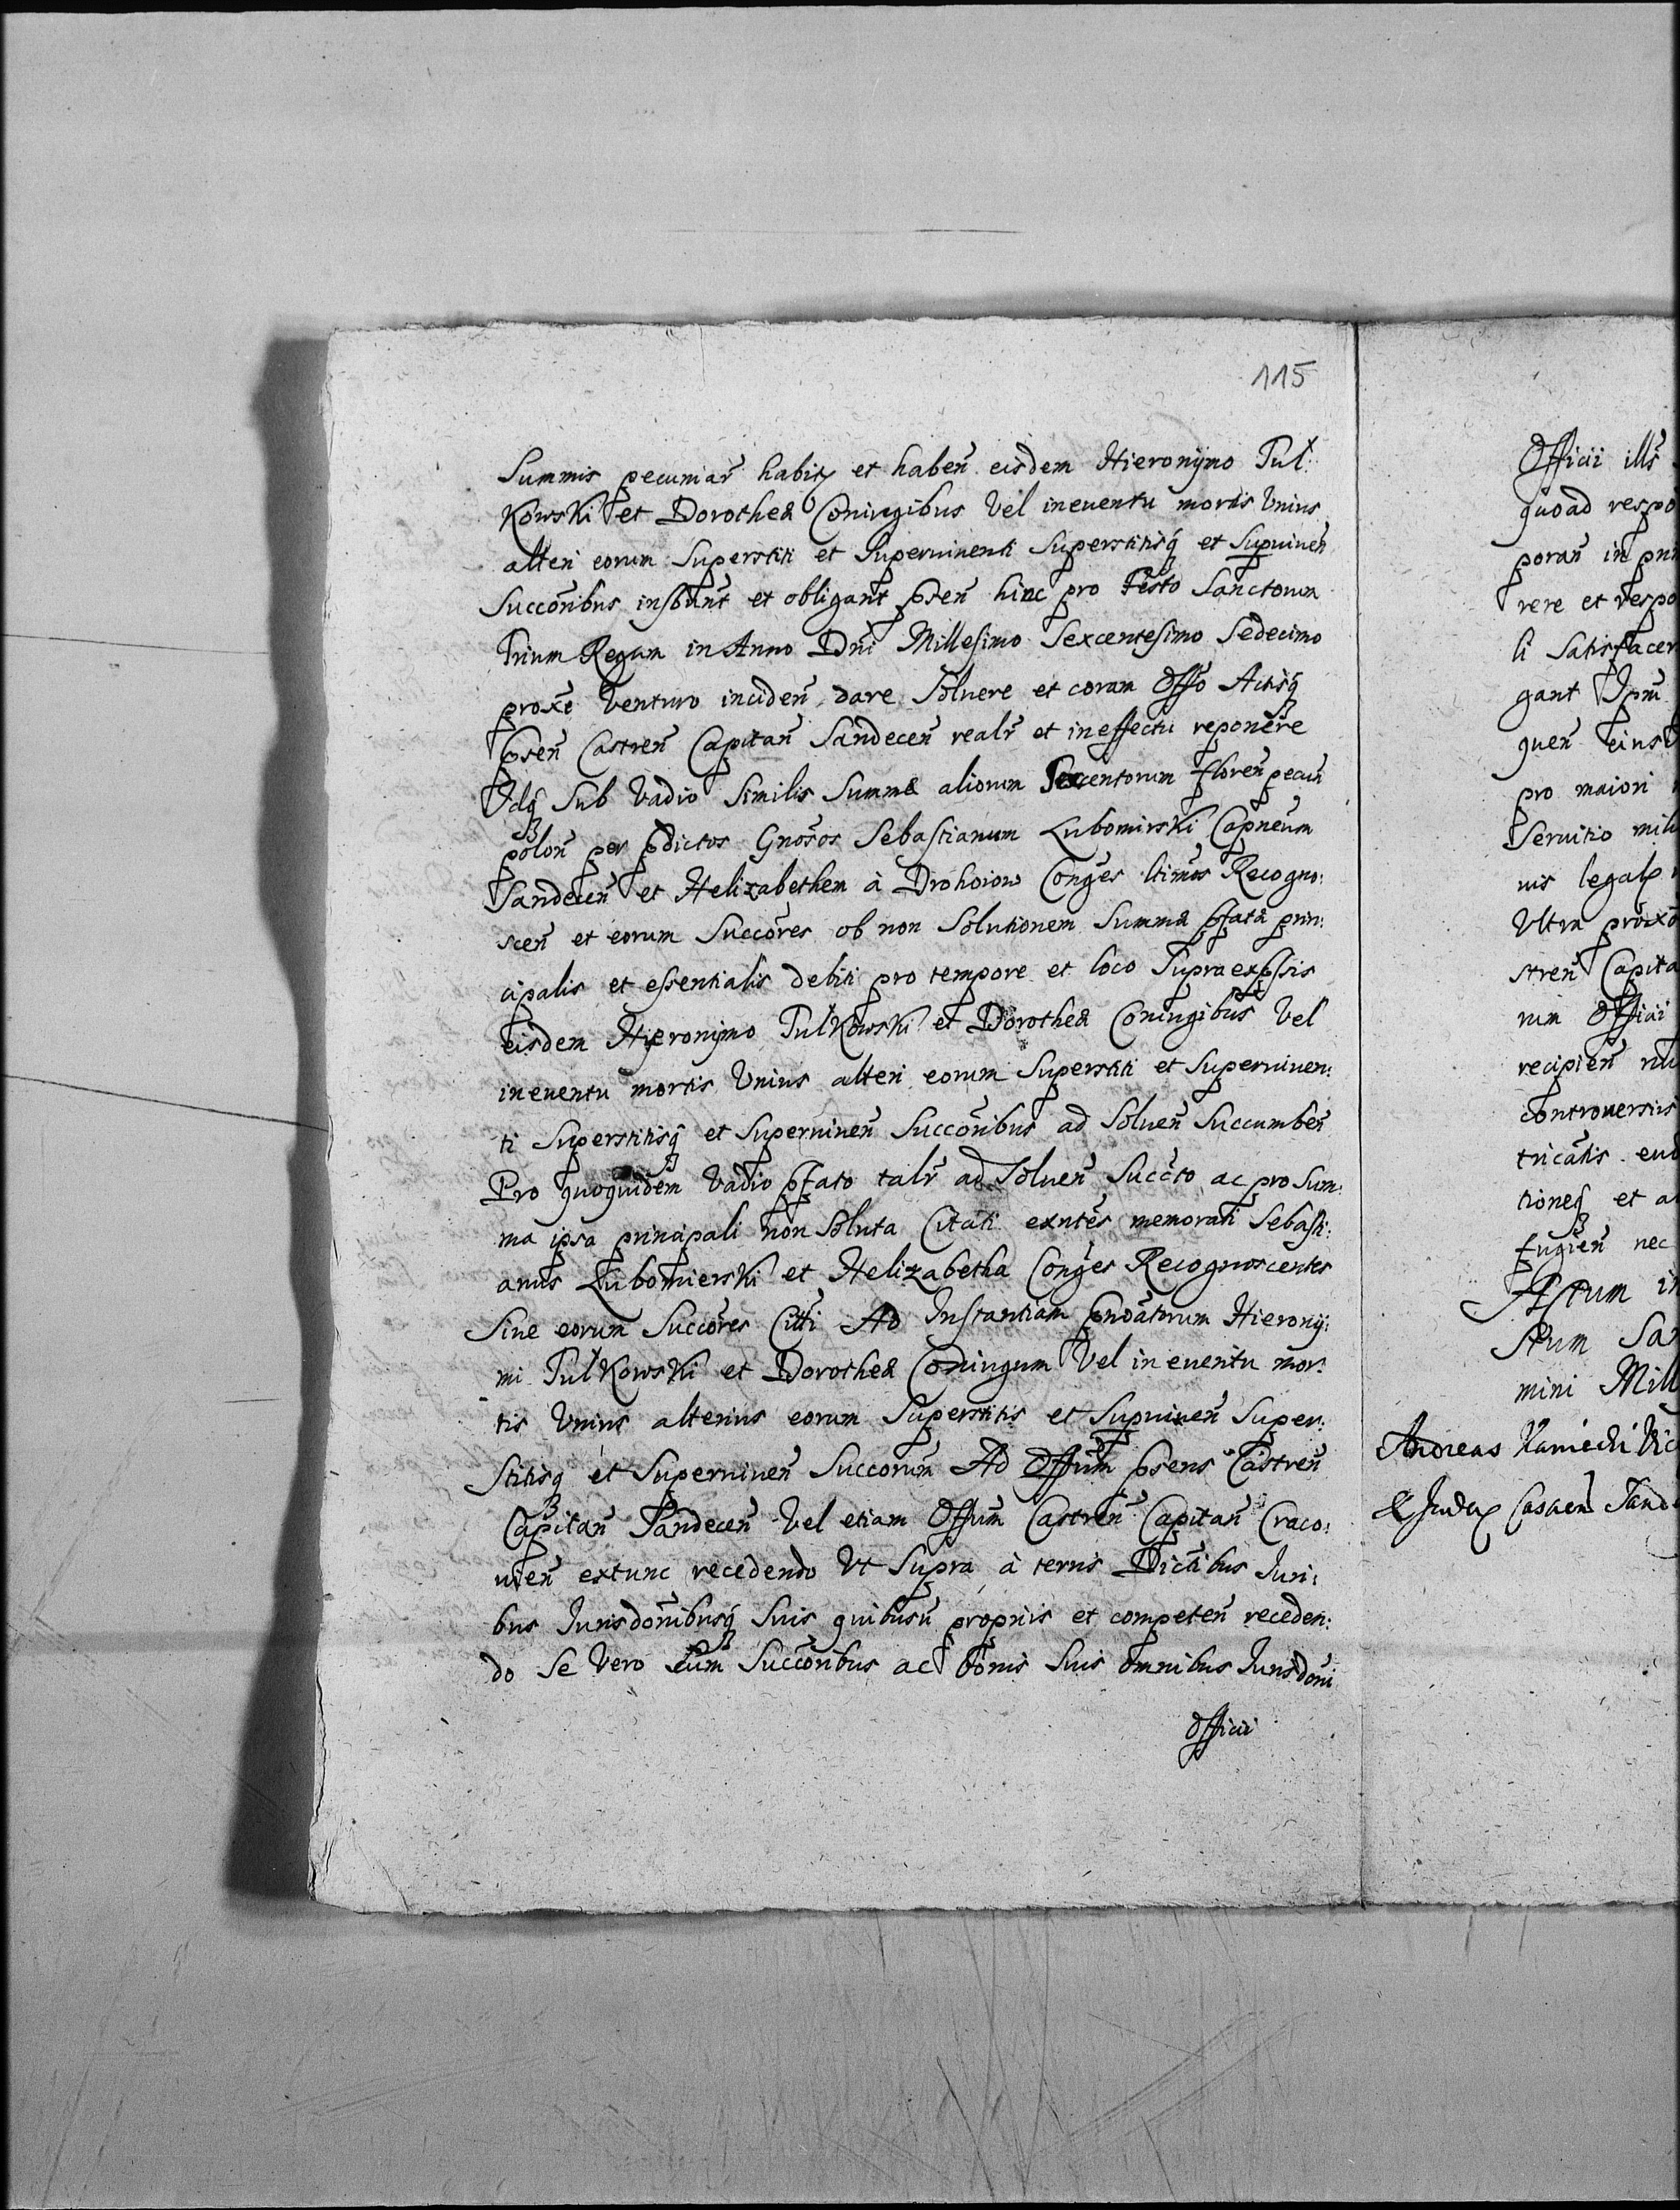 115
Summis pecuniar̃ habitꝫ et haben̄ eisdem Hieronymo Pul:
Kowski et Dorotheæ Coniugibus Vel in euentu mortis Vnius
alteri eorum Superstiti et Superuiuenti Superstitisq̃ et Supuiuen̄
Succōribus insbunt et obligant pñ̃ hinc pro Festo Sanctorum
Trium Regum in Anno Dñi Millesimo Sexcentesimo Sedecimo
proxē Venturo inciden̄ dare Soluere et coram Offō Actisq̃
pñ̃ Castren̄ Capitan̄ Sandecen̄ realr̃ et in effectu reponere
Idq̃ Sub Vadio Similis Summæ aliorum Sexcentorum floren̄ pecun̄
polon̄ per pdictos Gnōsos Sebastianum Lubomirski Capneum
Sandecen̄ et Helizabetham à Drohoiow Conges ltimos Recogno:
scen̄ et eorum Succōres ob non Solutionem Summæ pfatæ prin:
cipalis et essentialis debiti pro tempore et loco Supraexpssis
eisdem Hieronymo Pulkowski et Dorotheæ Coniugibus Vel
in euentu mortis Vnius alteri eorum Superstiti et Superuiuen:
ti Superstitisq̃ et Superuiuen̄ Succōribus ad Soluen̄ Succumben̄
Pro quoquidem Vadio pfato talr̃ ad Soluen̄ Succto ac pro Sum:
ma ipsa principali non Soluta Citati exntes memorati Sebasti:
anus Lubomierski et Helizabetha Conges Recognoscentes
Siue eorum Succōres Citti Ad Instantiam Hierony:
mi Pulkowski et Dorotheæ Coniugum Vel in euentu mor:
tis Vnius alterius eorum Superstitis et Supuiuen̄ Super:
Stitisq̃ et Superuiuen̄ Succorum Ad Offum psens Castren̄
Capitan̄ Sandecen̄ Vel etiam Offum Castren̄ Capitan̄ Craco:
uien̄ extunc recedendo Vt Supra à terris Dictibus Iuri:
bus Iurisdōnibusq̃ Suis quibusu̇ proprijs et competen̄ receden:
do Se Vero cum Succōribus ac bonis Suis omnibus Iurisdōni
Officii
Officii ills
quoad respo
poran̄ in pni
rere et respo
li Satisfacer
gant Ipm̄
quen̄ eius
pro maiori
Seruitio mili
uis legalꝫ
Vltra prōxo
stren̄ Capita
rum Officii
recipien̄
controuersiis
tricatis
tioneq̃ et a
fugien̄ nec
Actum in
stum San
mini Mill
Andreas Vic
& Iudex Castren̄ Sande